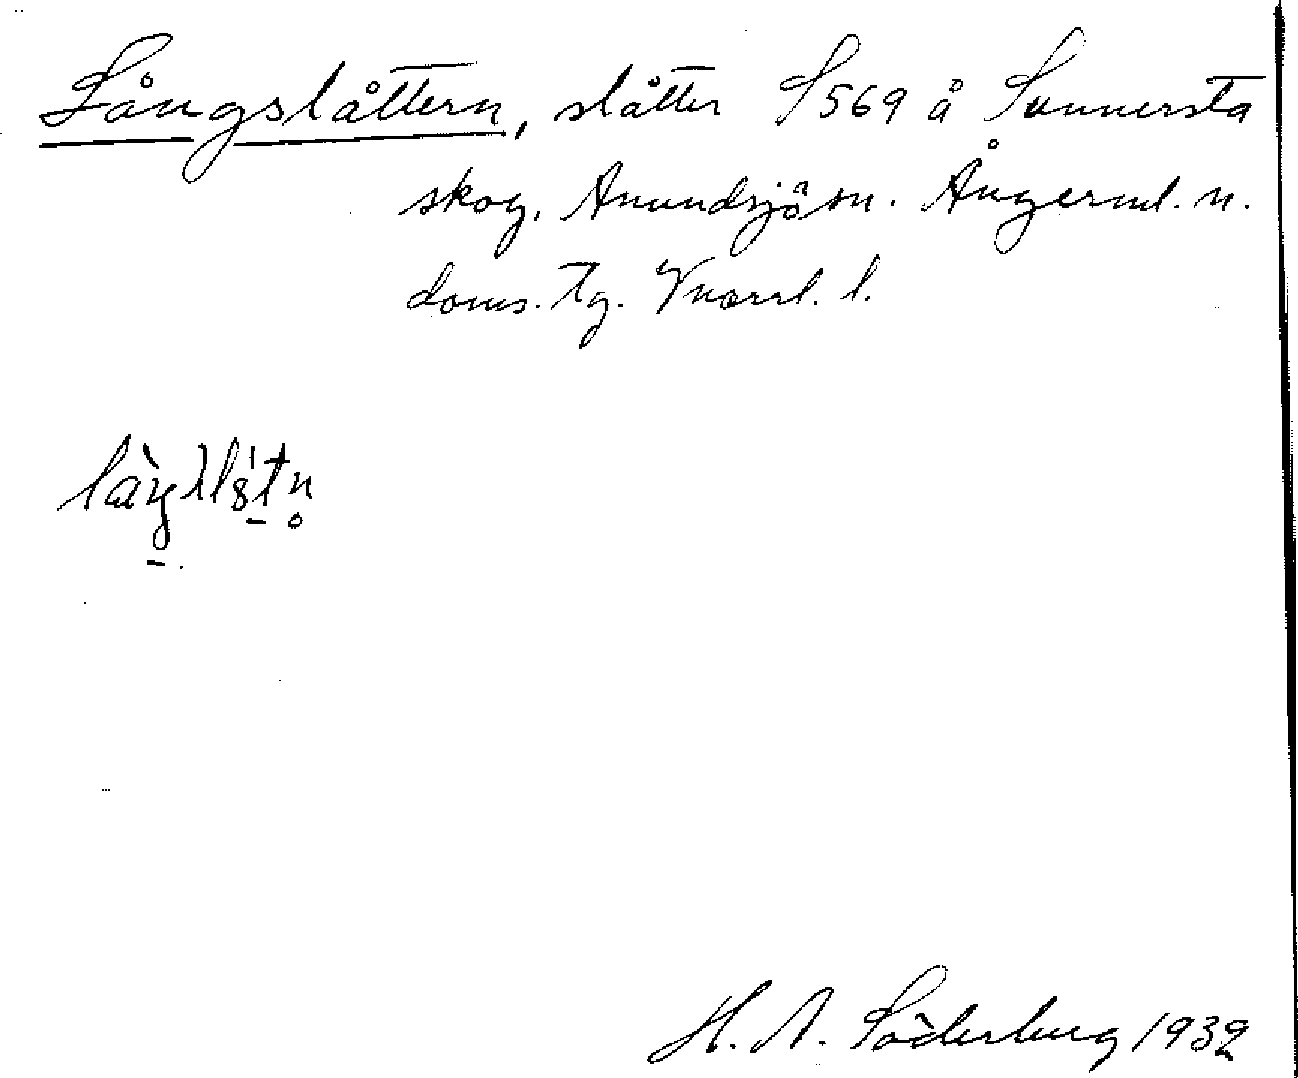 Långslåttern, slåtter S 569 å Sunnersta
skog, Anundsjö sn. Ångerml. n.
doms. tg. Vnorrl. l.
H. A. Söderberg 1932